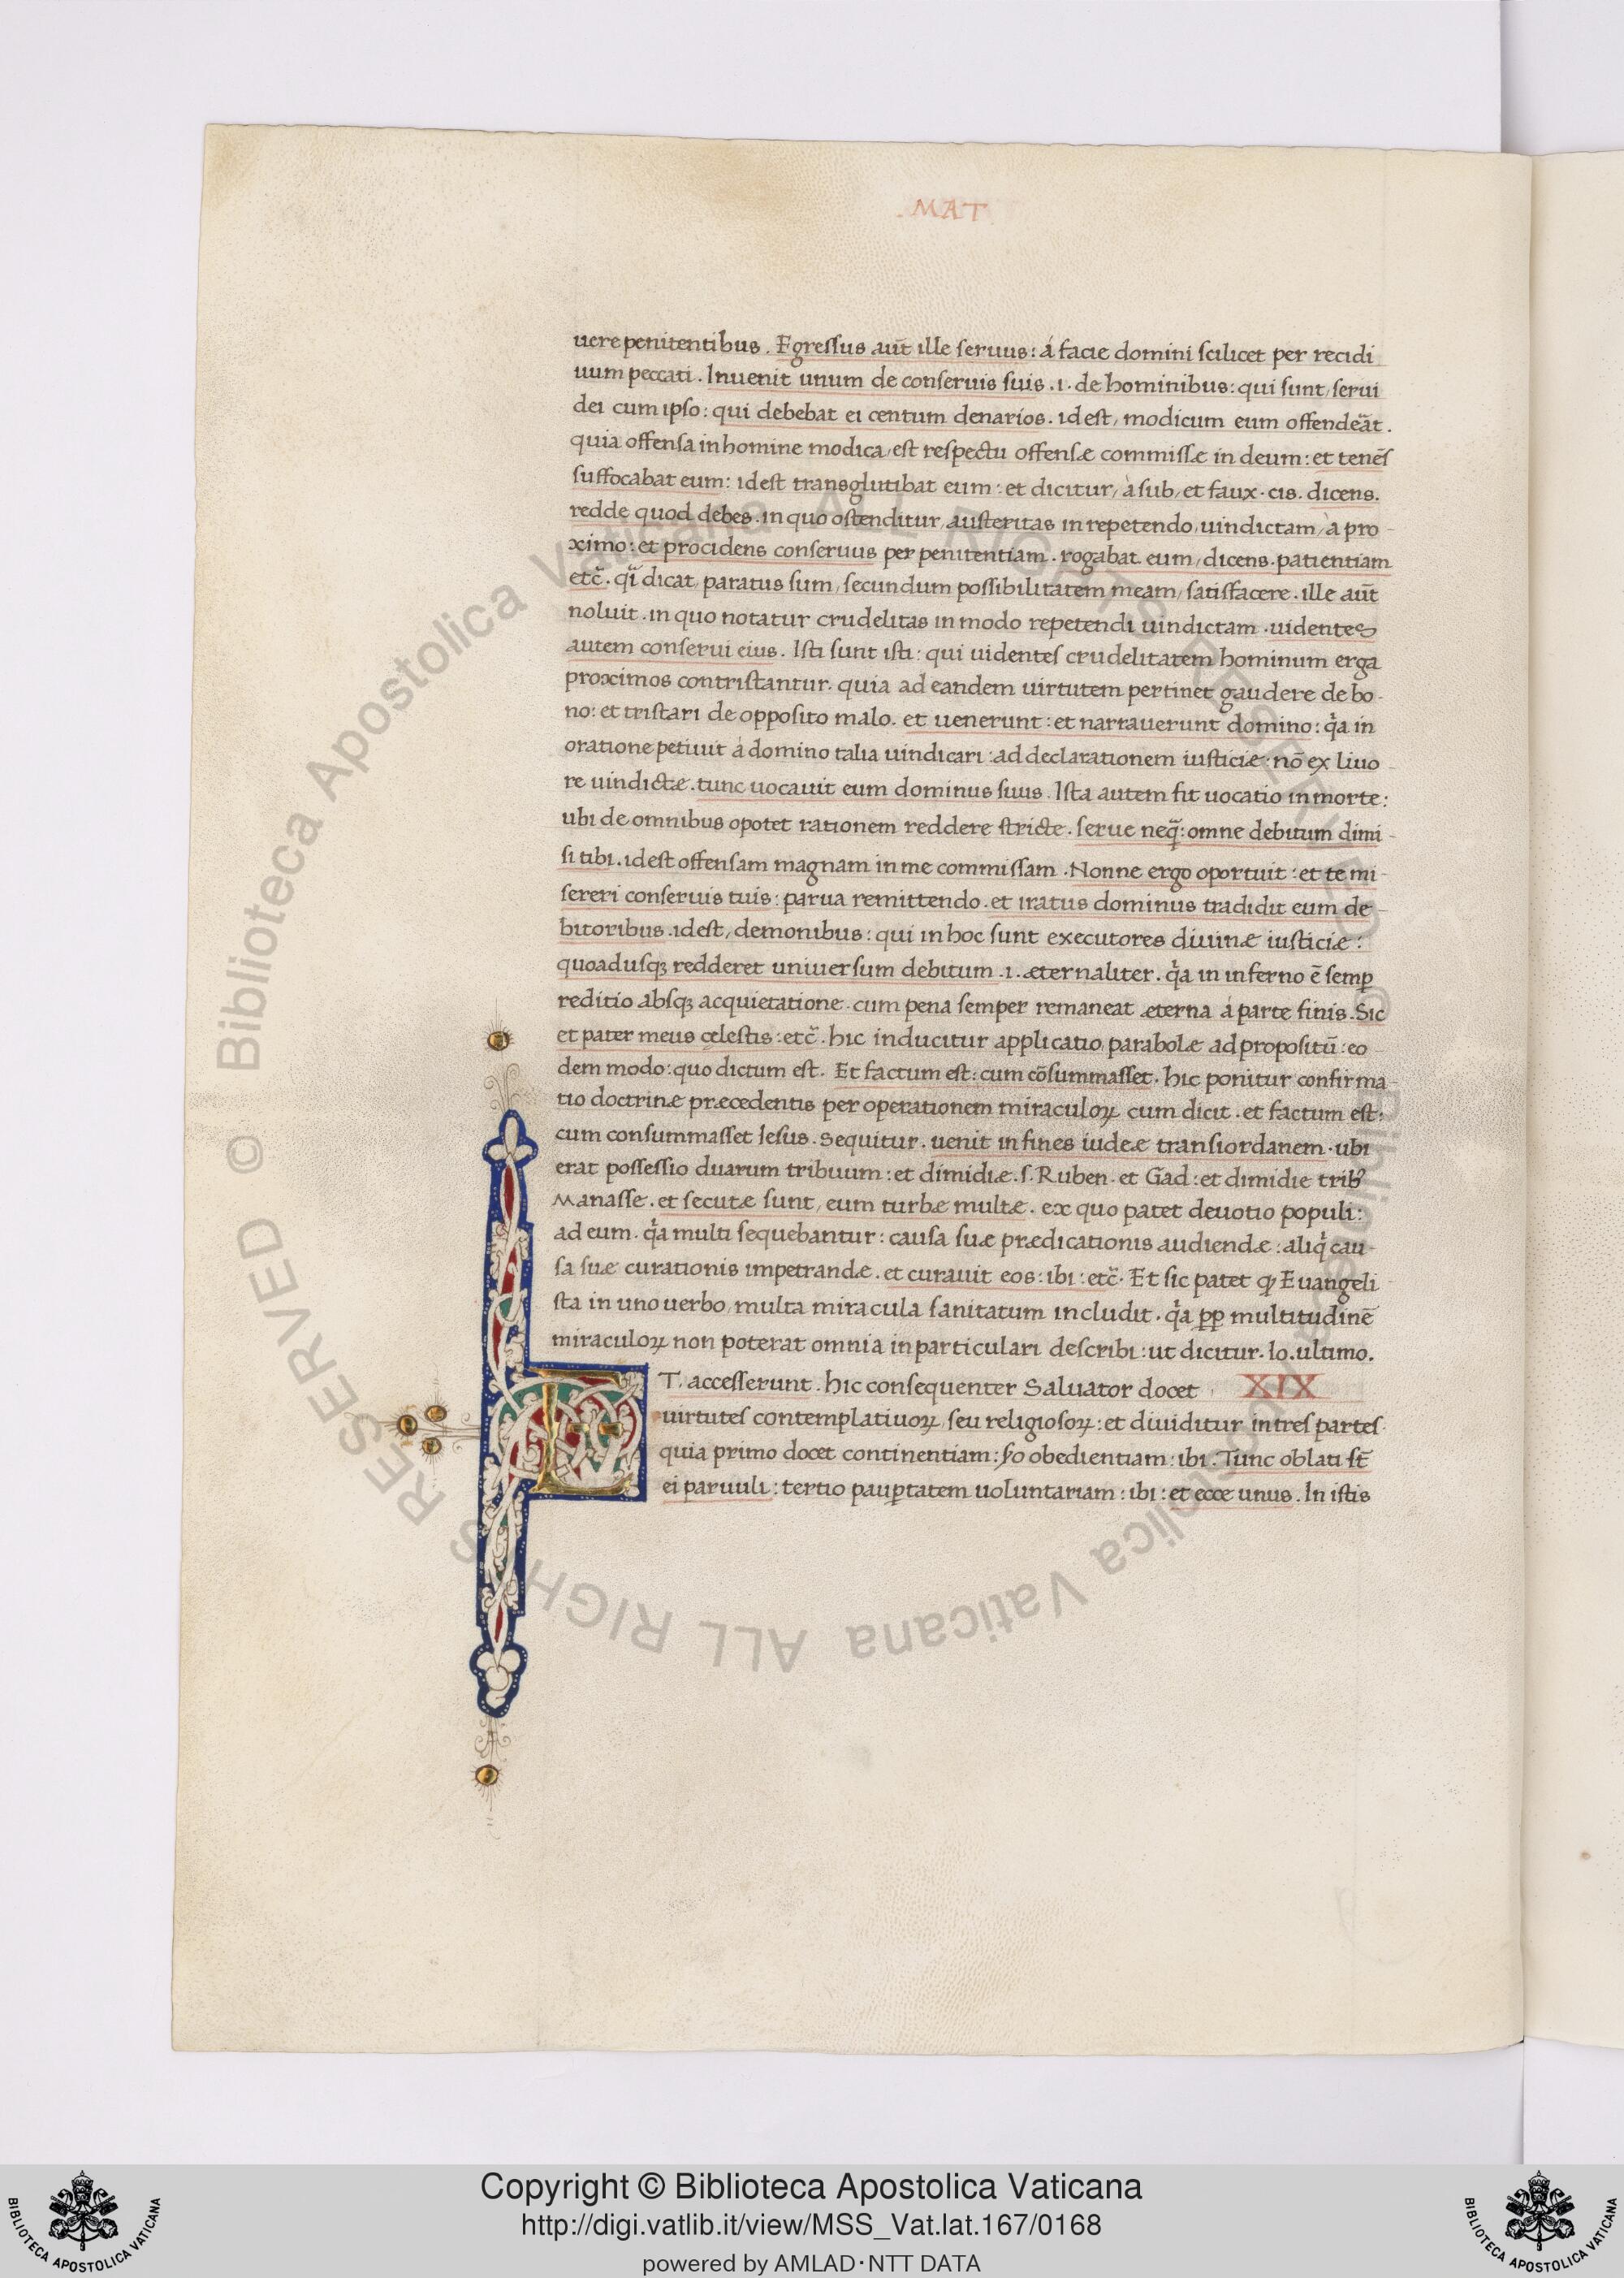 .MAT
uere penitentibus. Egressus aut̄ ille seruus: á facie domini scilicet per recidi
uum peccati. Inuenit unum de conseruis suis .i. de hominibus: qui sunt, serui
dei cum ipso: qui debebat ei centum denarios. idest, modicum eum offendēāt.
quia offensa in homine modica, est respectu offensæ commissæ in deum: et tenēs
suffocabat eum: idest transglutibat eum: et dicitur, à sub, et faux. cis. dicens.
redde quod debes. in quo ostenditur, austeritas in repetendo, uindictam, à pro-
ximo: et procidens conseruus per penitentiam. rogabat eum, dicens. patientiam
etc̄. qͥ dicat, paratus sum, secundum possibilitatem meam, satisfacere. ille aut̄
noluit. in quo notatur crudelitas in modo repetendi uindictam. uidentes
autem conserui eius. Isti sunt isti: qui uidentes crudelitatem hominum erga
proximos contristantur. quia ad eandem uirtutem pertinet gaudere de bo-
no: et tristari de opposito malo. et uenerunt: et narrauerunt domino: qͣa in
oratione petiuit á domino talia uindicari: ad declarationem iusticiæ: nō ex liuo-
re uindictæ. tunc uocauit eum dominus suus. Ista autem fit uocatio in morte:
ubi de omnibus opotet rationem reddere stricte. serue neq̄: omne debitum dimi-
si tibi. idest offensam magnam in me commissam. Nonne ergo oportuit: et te mi-
sereri conseruis tuis: parua remittendo. et iratus dominus tradidit eum de-
bitoribus. idest, demonibus: qui in hoc sunt executores diuinæ iusticiæ:
quoadusqꝫ redderet uniuersum debitum .i. æternaliter. qͣa in inferno ē semꝑ
reditio absqꝫ acquietatione. cum pena semper remaneat æterna á parte finis. Sic
et pater meus cęlestis: etc̄. hic inducitur applicatio, parabolæ ad propositū: eo-
dem modo: quo dictum est. Et factum est: cum cōsummasset. hic ponitur confirma-
tio doctrinæ præcedentis per operationem miraculoꝝ cum dicit. et factum est:
cum consummasset Iesus. Sequitur. uenit in fines iudeæ transiordanem. ubi
erat possessio duarum tribuum: et dimidiæ .s. Ruben. et Gad: et dimidie tribꝰ
Manasse. et secutæ sunt, eum turbæ multæ. ex quo patet deuotio populi:
ad eum. qͣa multi sequebantur: causa suæ prædicationis audiendæ: aliqͥ cau-
sa suæ curationis impetrandæ. et curauit eos: ibi: etc̄. Et sic patet ꝙ Euangeli-
sta in uno uerbo, multa miracula sanitatum includit. qͣa ꝓꝑ multitudinē
miraculoꝝ non poterat omnia in particulari describi: ut dicitur. Io. ultimo.
ET. accesserunt. hic consequenter Saluator docet XIX
uirtutes contemplatiuoꝝ, seu religiosoꝝ: et diuiditur in tres partes.
quia primo docet continentiam: sͦo obedientiam: ibi. Tunc oblati st̄
ei paruuli: tertio pauꝑtatem uoluntariam: ibi: et ecce unus. In istis
© Biblioteca Apostolica Vaticana ALL RIGHTS RESERVED © Biblioteca Apostolica Vaticana ALL RIGHTS RESERVED
Copyright © Biblioteca Apostolica Vaticana
http://digi.vatlib.it/view/MSS_Vat.lat.167/0168
powered by AMLAD·NTT DATA
BIBLIOTECA APOSTOLICA VATICANA
BIBLIOTECA APOSTOLICA VATICANA